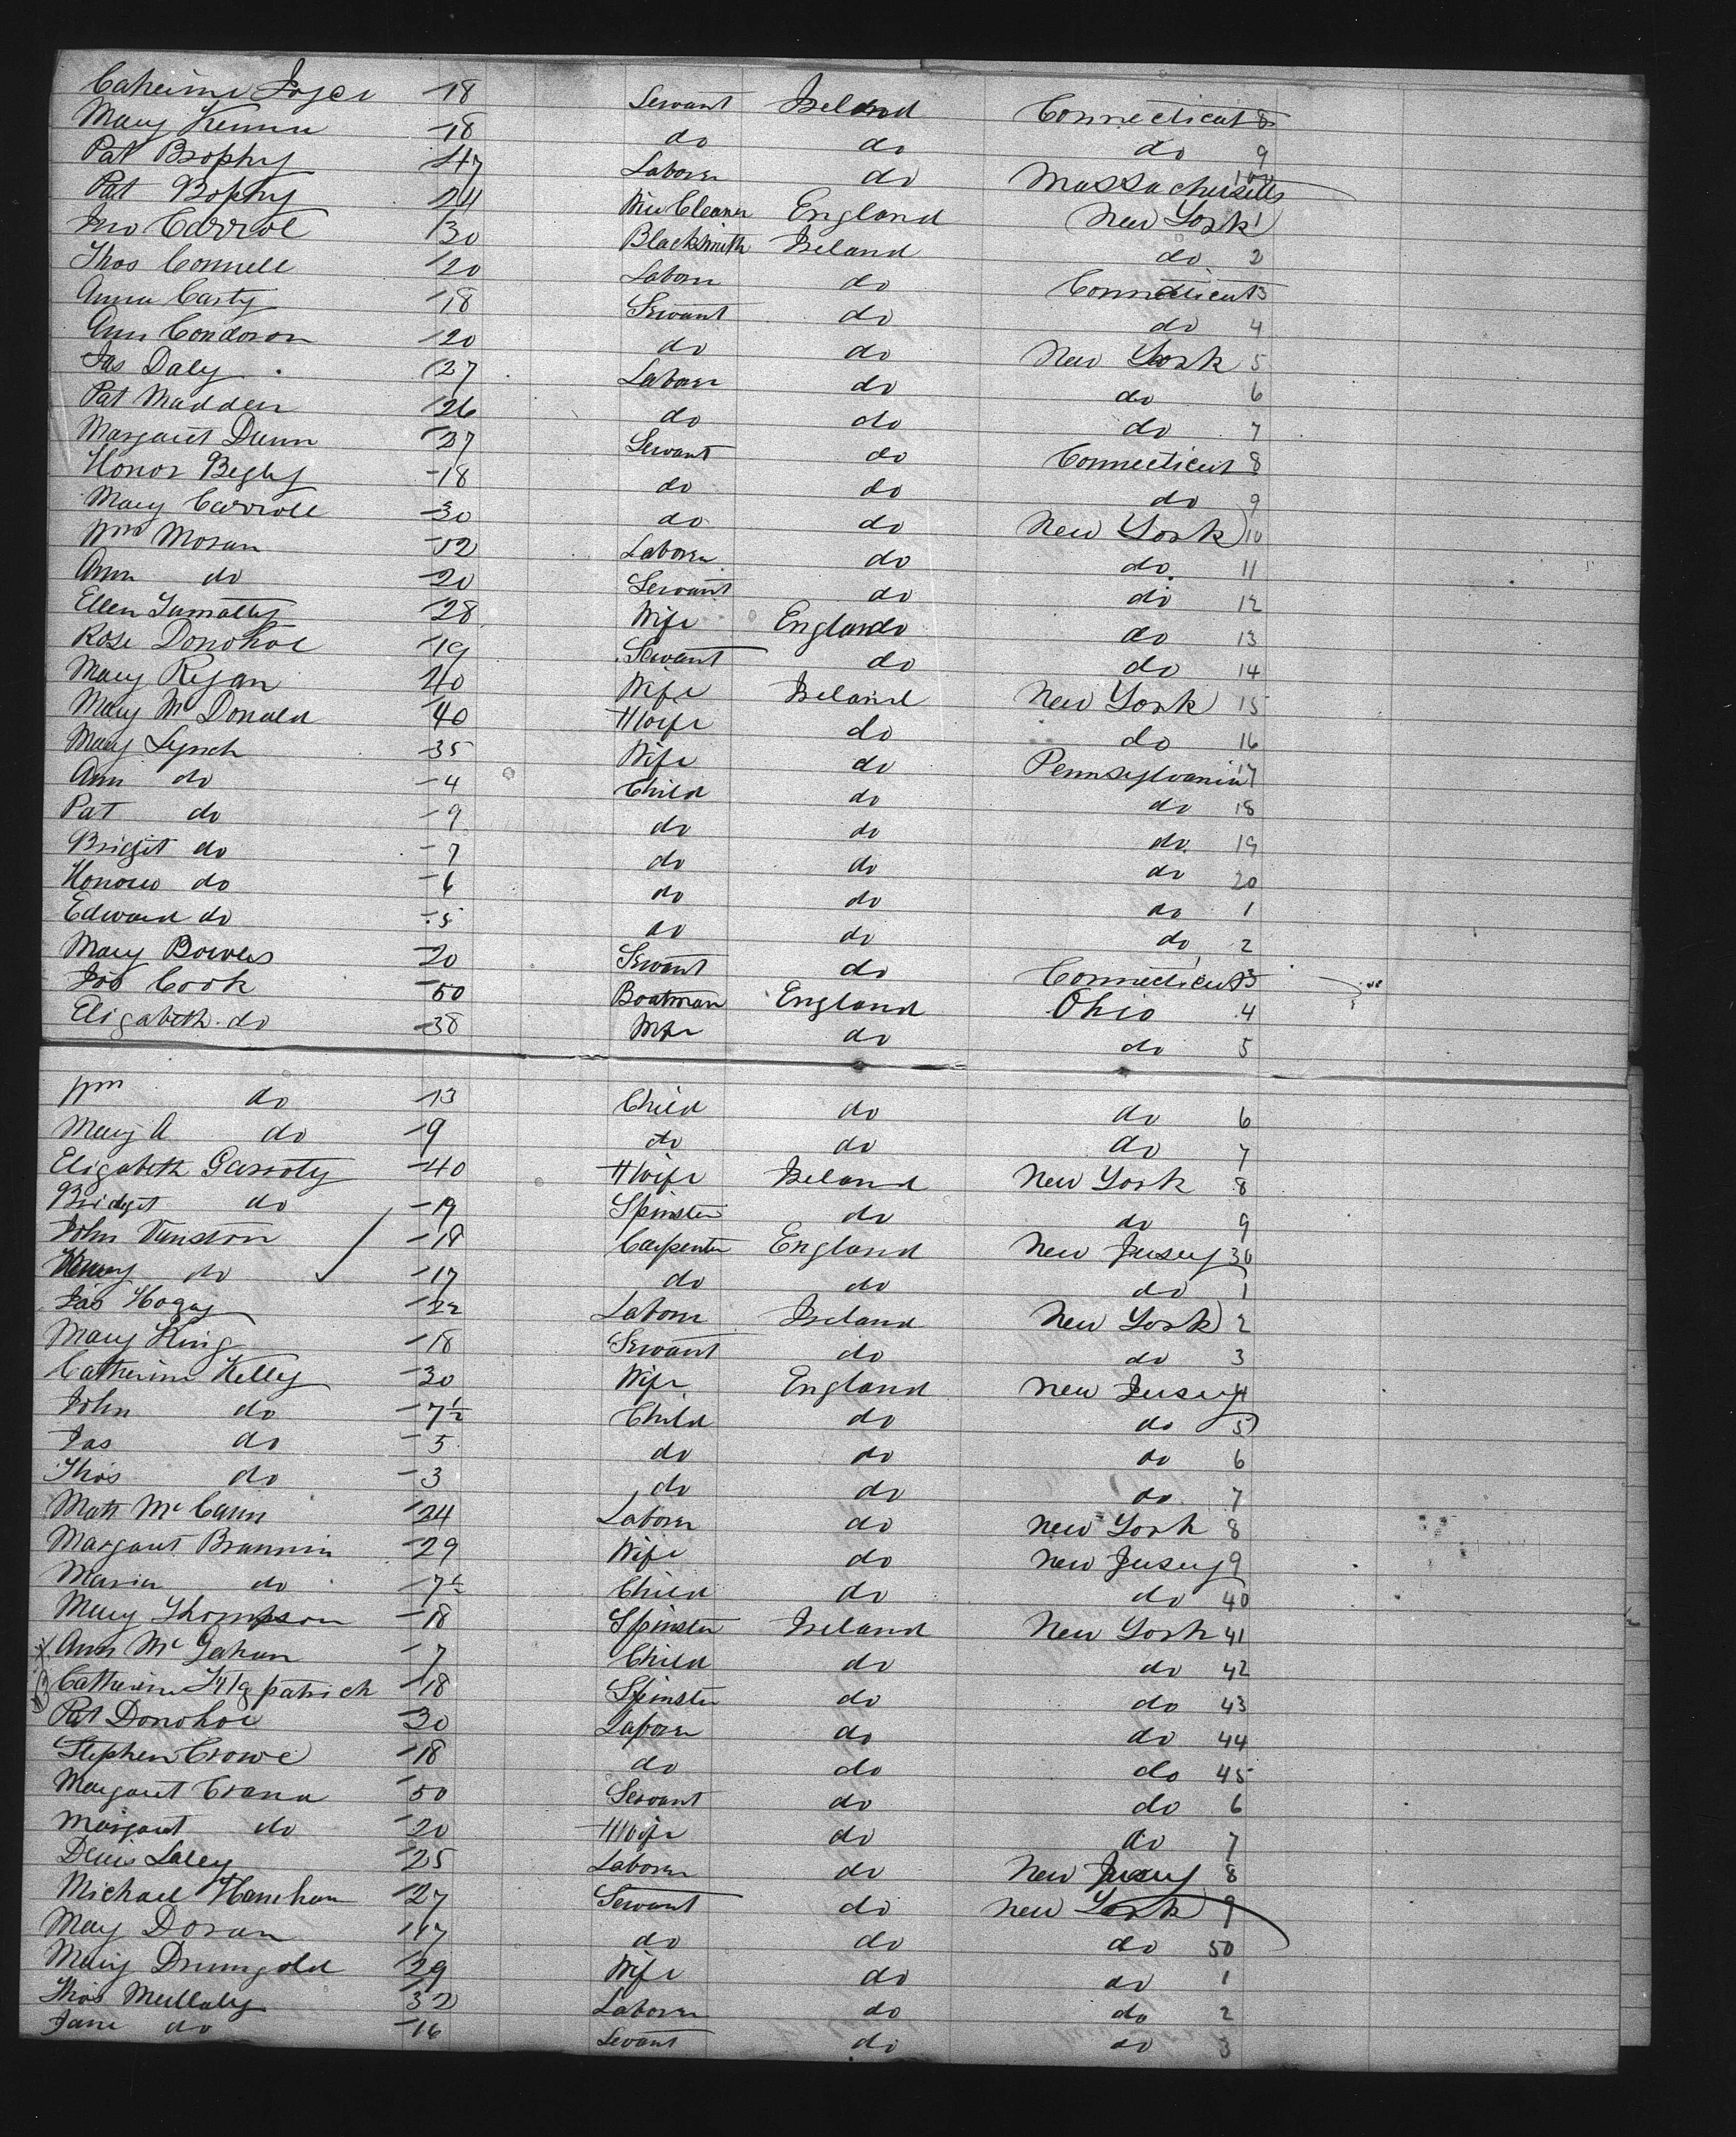 Catherine Joyce 18 Servant Ireland Connecticut 8
Mary 18 do do do 9
Pat Brophy 47 Laborer do Massachusetts 100
Pat Bophy 24 Wire Cleaner England New York 1
Jno Carrol 30 Blacksmith Ireland do 2
Thos Connell 20 Laborer do Connecticut 3
Anna Carty 18 Servant do do 4
Ann Condoron 20 do do New York 5
Jas Daly 27 Laborer do do 6
Pat Madden 26 do do do 7
Margaret Dunn 27 Servant do Connecticut 8
Honor Begly 18 do do do 9
Mary Carroll 30 do do New York 10
Wm Moran 12 Laborer do do 11
Ann do 20 Servant do do 12
Ellen 28 Wife England do do 13
Rose Donohoe 19 Servant do do 14
Mary Regan 40 Wife Ireland New York 15
Mary McDonald 40 HWife do do 16
Mary Lynch 35 Wife do Pennsylvania 17
Ann do 4 Child do do 18
Pat do 9 do do do 19
Bridgit do 7 do do do 20
Honora do 6 do do do 1
Edward do 5 do do do 2
Mary Bowers 20 Servant do Connecticut 3
Jos Cook 50 Boatman England Ohio 4
Elizabeth do 38 Wife do do 5
Wm do 13 Child do do 6
Mary A do 9 do do do 7
Elizabeth Garroty 40 HWife Ireland New York 8
Bridget do 19 Spinster do do 9
John Vanston 18 Carpenter England New Jersey 30
Henry do 17 do do do 1
Jas Hogan 22 Laborer Ireland New York 2
Mary King 18 Servant do do 3
Catherine Kelly 30 Wife England New Jersey 4
John do 7½ Child do do 5
Jas do 5 do do do 6
Thos do 3 do do do 7
Matt McCann 24 Laborer do New York 8
Margaret Brannin 29 Wife do New Jersey 9
Maria do 7½ Child do do 40
Mary Thompson 18 Spinster Ireland New York 41
Ann McGahan 7 Child do do 42
Catherine Fitzpatrick 18 Spinster do do 43
Pat Donohoe 30 Laborer do do 44
Stephen Crowe 18 do do do 45
Margaret Crana 50 Servant do do 6
Margaret do 20 HWife do do 7
Denis Laley 25 Laborer do New Jersey 8
Michael Hanrhan 27 Servant do New York 9
May Doran 17 do do do 50
Mary Drumgold 29 Wife do do 1
Thos Mullaly 32 Laborer do do 2
Jane do 16 Servant do do 3